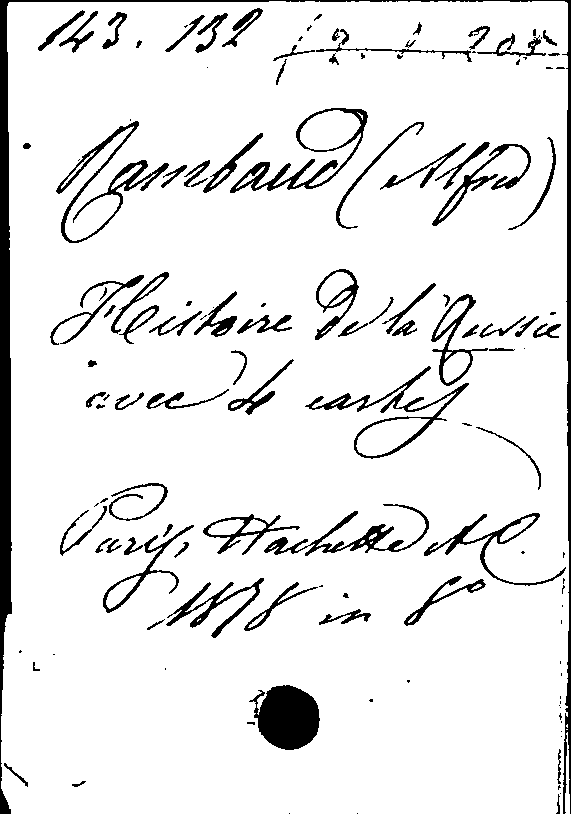 143.132 12.1.205
Rambaud (Alfred)
Histoire de la Russie
avec 4 cartes
Paris, Hachette et C.
1878 in 8°